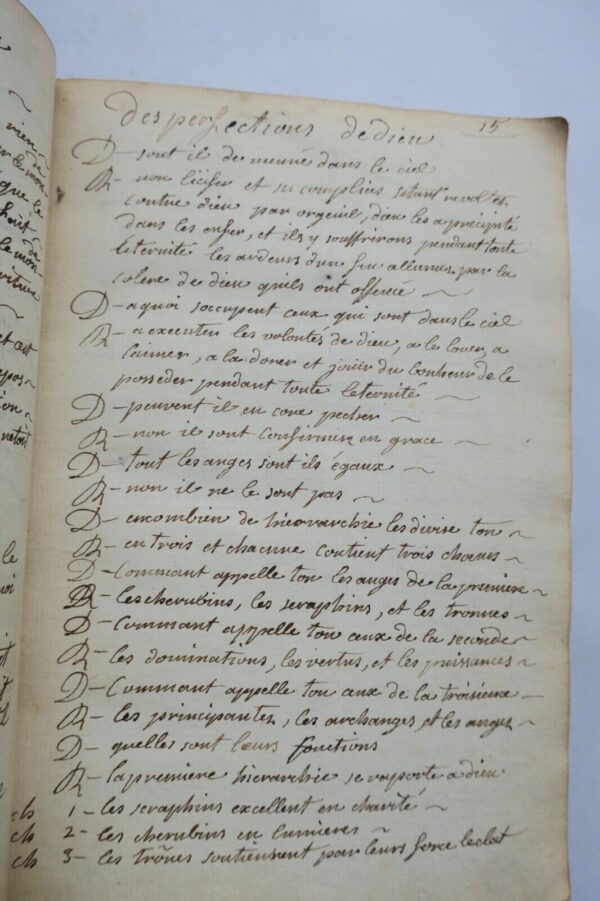 rien
que le
ch
ch
ch
des perfections de dieu
15
D - sont il de meuré dans le ciel
R - non lucifer et ses complices setant revoltes
contre dieu par orgeuil, dieu les a précipité
dans les enfer, et ils y souffrirons pendant toute
leternité les ardeurs dun feu allumes par la
colere de dieu quils ont offencé ~
D - a quoi soccupent ceux qui sont dans le ciel
R - a executer les volontés de dieu, a le louer, a
laimer, a la dorer et jouir du bonheur de le
posseder pendant toute leternité ~
D - peuvent il en core pecher ~
R - non il sont confirmer en grace ~
D - tout les anges sont ils égaux ~
R - non il ne le sont pas ~
D - en combien de hierarchie les divise ton ~
R - en trois et chacune contient trois chœurs ~
D - Commant appelle ton les anges de la premiere ~
R - les cherubins, les seraphins, et les tronnes ~
D - Commant appelle ton ceux de la seconde ~
R - les dominations, les vertus, et les puissances ~
D - Commant appelle ton aux de la troisieme ~
R - les principautes, les archanges, et les anges ~
D - quelles sont lœurs fonctions
R - la premiere hierarchie se raporte a dieu
1 - les seraphins excellent en charité ~
2 - les cherubins en lumieres ~
3 - les trônes soutiennent par leurs force leclat